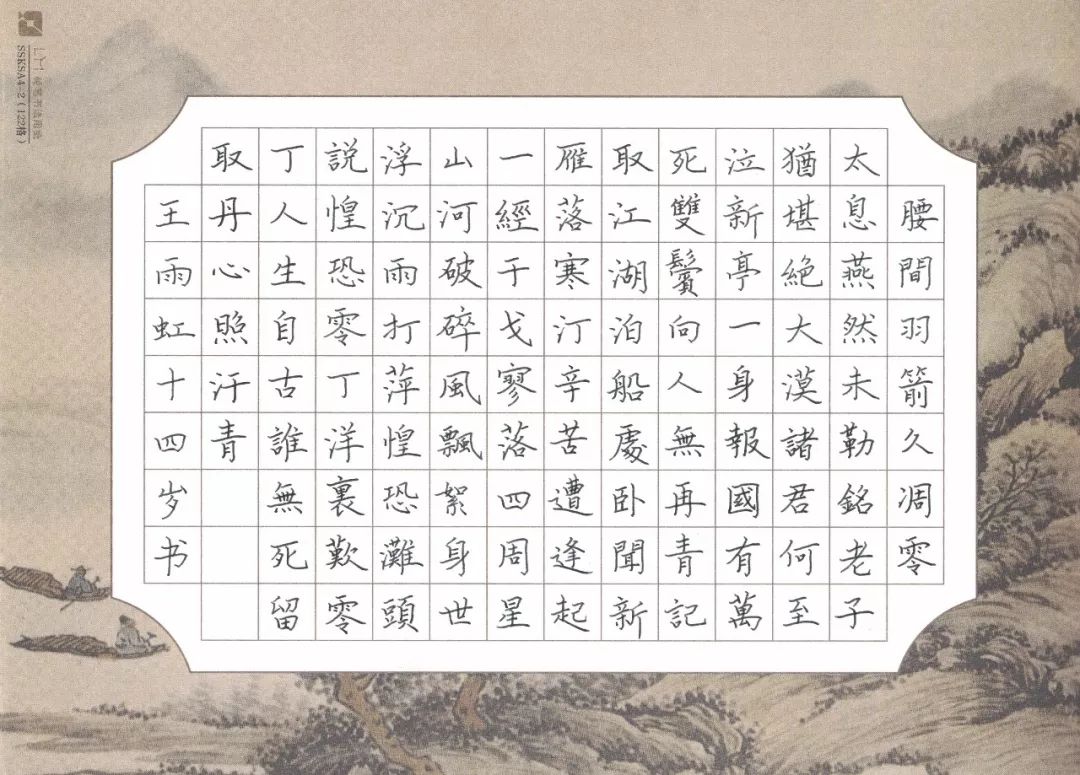 腰間羽箭久凋零
太息燕然未勒銘老子
猶堪絕大漠諸君何至
泣新亭一身報國有萬
死雙鬢向人無再青記
取江湖泊船處卧聞新
雁落寒汀辛苦遭逢起
一經干戈寥落四周星
山河破碎風飄絮身世
浮沉雨打萍惶恐灘頭
説惶恐零丁洋裏歎零
丁人生自古誰無死留
取丹心照汗青
王雨虹十四岁书
SSKSA4-2(122格)